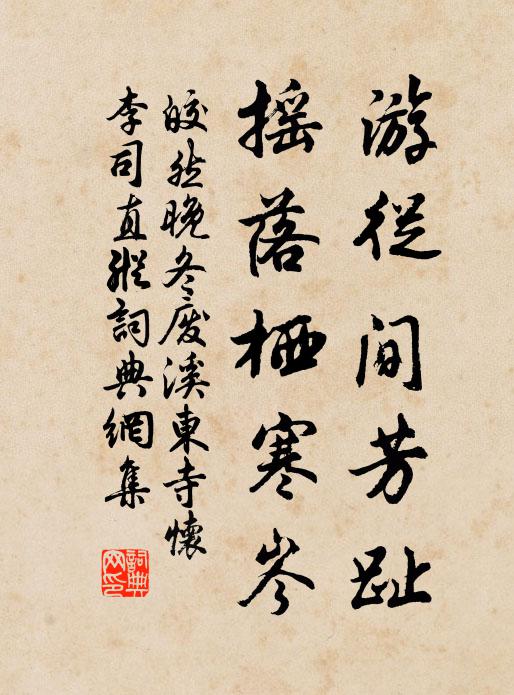 游從間芳趾
搖落栖寒岑
皎然晚冬廢溪東寺懷
李司直縱詞典網集
詞典
網印